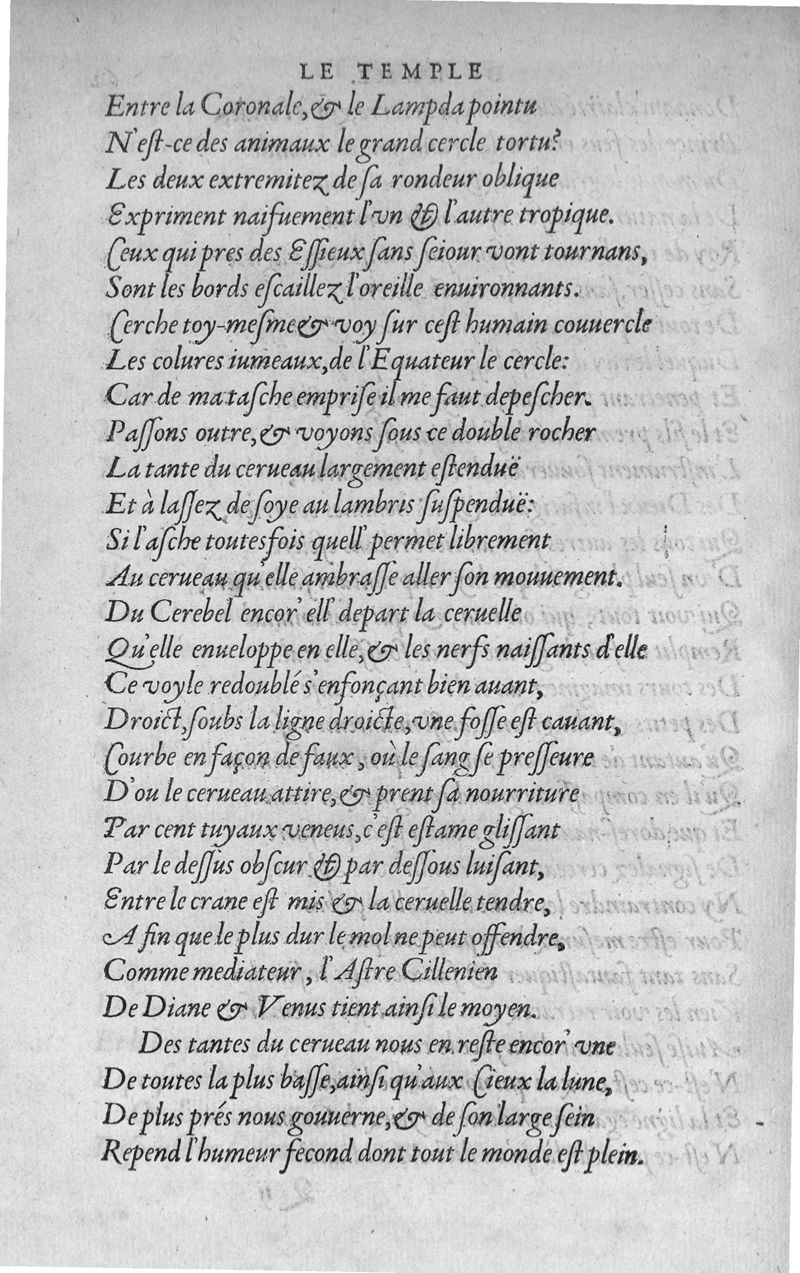 LE TEMPLE
Entre la Coronale, & le Lampda pointu
N'eſt-ce des animaux le grand cercle tortu?
Les deux extremitez de ſa rondeur oblique
Expriment naifuement l'vn & l'autre tropique.
Ceux qui pres des Eſſieux ſans ſeiour vont tournans,
Sont les bords eſcaillez l'oreille enuironnants.
Cerche toy-meſme & voy ſur ceſt humain couuercle
Les colures iumeaux, de l'Equateur le cercle:
Car de ma taſche empriſe il me faut depeſcher.
Paſſons outre, & voyons ſous ce double rocher
La tante du cerueau largement eſtenduë
Et à laſſez de ſoye au lambris ſuſpenduë:
Si l'aſche toutesfois quell' permet librement
Au cerueau qu'elle ambraſſe aller ſon mouuement.
Du Cerebel encor' ell' depart la ceruelle
Qu'elle enueloppe en elle, & les nerfs naiſſants d'elle
Ce voyle redoublé s'enfonçant bien auant,
Droict, ſoubs la ligne droicte, vne foſſe eſt cauant,
Courbe en façon de faux, où le ſang ſe preſſeure
D'ou le cerueau attire, & prent ſa nourriture
Par cent tuyaux veneus, c'eſt eſtame gliſſant
Par le deſſus obſcur & par deſſous luiſant,
Entre le crane eſt mis & la ceruelle tendre,
A fin que le plus dur le mol ne peut offendre,
Comme mediateur, l'Aſtre Cillenien
De Diane & Venus tient ainſi le moyen.
Des tantes du cerueau nous en reſte encor' vne
De toutes la plus baſſe, ainſi qu'aux Cieux la lune,
De plus prés nous gouuerne, & de ſon large ſein
Repend l'humeur fecond dont tout le monde eſt plein.